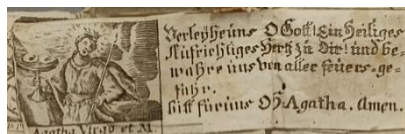 Verleÿhe uns O Gott! Ein Heiliges
Aufrichtiges Hertz zu Dir! und be-
wahre uns von aller feuers-ge-
fahr.
bitt für uns O H. Agatha. Amen.
Agatha Virgo et M.